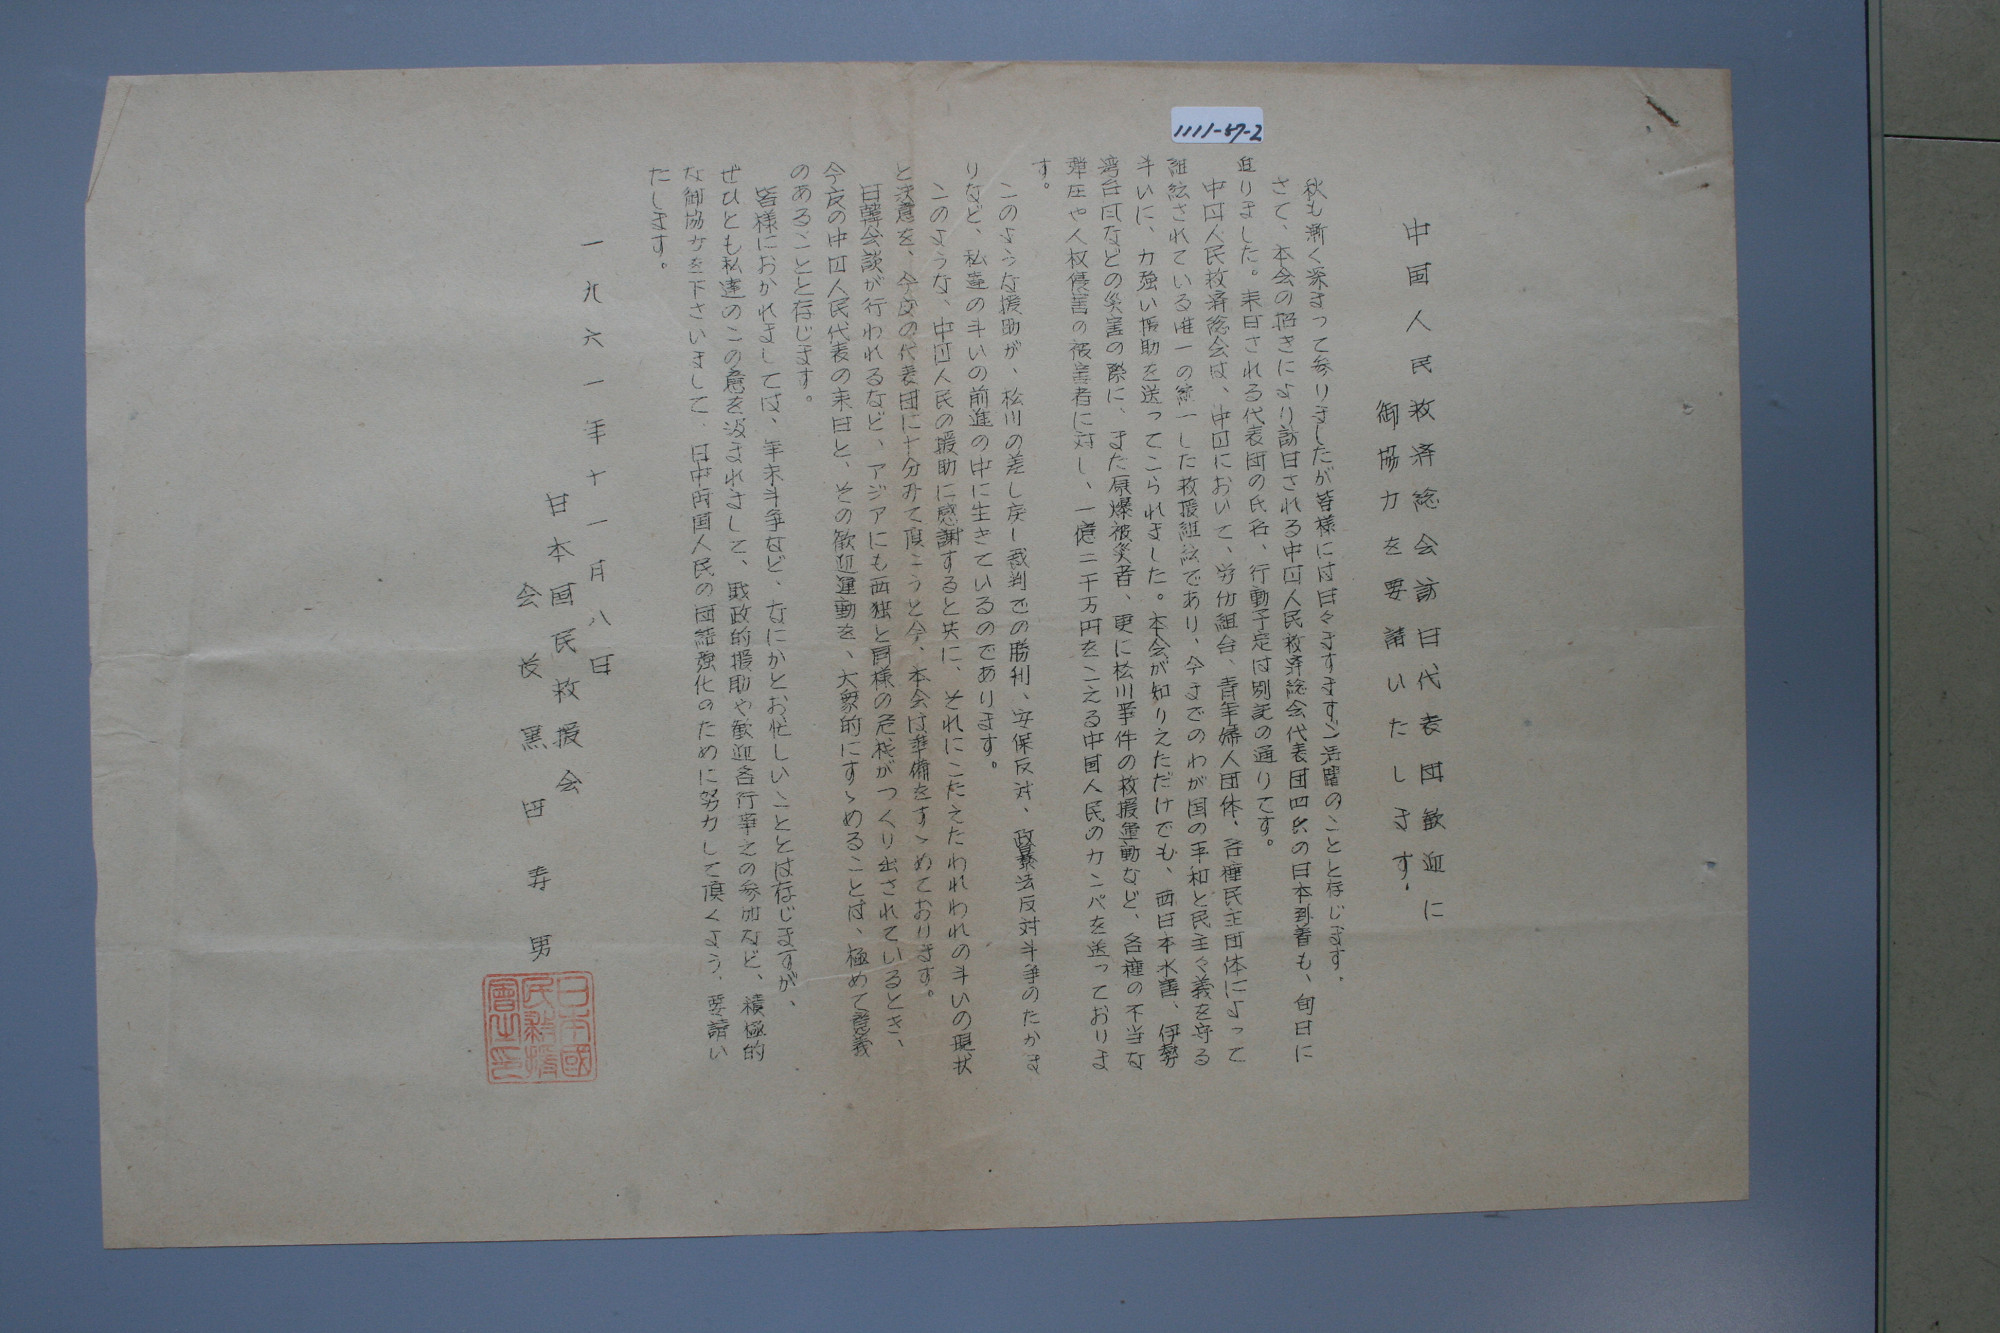 1111-57-2
中国人民救済総会訪日代表団歓迎に
御協力を要請いたします.
秋も漸く深まって参りましたが皆様には日々ますますご活躍のことと存じます.
さて、本会の招きにより訪日される中国人民救済総会代表団四氏の日本到着も、旬日に
迫りました。来日される代表団の氏名、行動予定は別記の通りです。
中国人民救済総会は、中国において、労仂組合、青年婦人団体、各種民主団体によって
組絃されている唯一の統一した救援組絃であり、今までのわが国の平和と民主々義を守る
斗いに、力強い援助を送ってこられました。本会が知りえただけでも、西日本水害、伊勢
湾台風などの災害の際に、また原爆被災者、更に松川事件の救援運動など、各種の不当な
弾圧や人权侵害の被害者に対し、一億二千万円をこえる中国人民のカンパを送っておりま
す。
このような援助が、松川の差し戻し裁判での勝利、安保反対、政暴法反対斗争のたかま
りなど、私達の斗いの前進の中に生きているのであります。
このような、中国人民の援助に感謝すると共に、それにこたえたわれわれの斗いの現状
と決意を、今度の代表団に十分みて頂こうと今、本会は準備をすゝめております。
日韓会談が行われるなど、アジアにも西独と同様の危机がつくり出されているとき、
今度の中国人民代表の来日と、その歓迎運動を、大衆的にすゝめることは、極めて意義
のあることと存じます。
皆様におかれましては、年末斗争など、なにかとお忙しいこととは存じますが、
ぜひとも私達のこの意を汲まれまして、財政的援助や歓迎各行事えの参加など、積極的
な御協力を下さいまして、日中両国人民の団結強化のために努力して頂くよう、要請い
たします。
一九六一年十一月八日
日本国民救援会
会長 黒田寿男
日本國
民救援
會之印